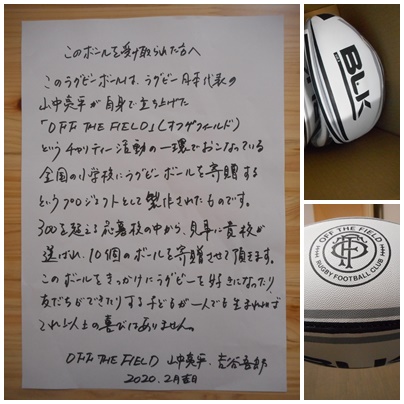 このボールを受け取られた方へ
このラグビーボールは、ラグビー日本代表の
山中亮平が自身で立ち上げた
「OFF THE FIELD」(オフザフィールド)
というチャリティー活動の一環でおこなっている
全国の小学校にラグビーボールを寄贈する
というプロジェクトとして製作されたものです。
300を超える応募校の中から、見事に貴校が
選ばれ、10個のボールを寄贈させて頂きます。
このボールをきっかけにラグビーを好きになったり
友だちができたりする子どもが一人でも生まれれば
これ以上の喜びはありません。
OFF THE FIELD 山中亮平、吉谷吾郎
2020.2月吉日
BLK
OFF THE FIELD
RUGBY FOOTBALL CLUB